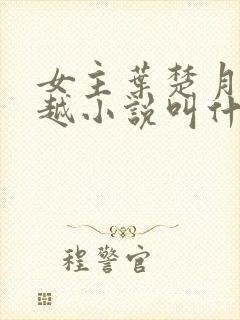 女主葉楚月
越小說叫什
程警官